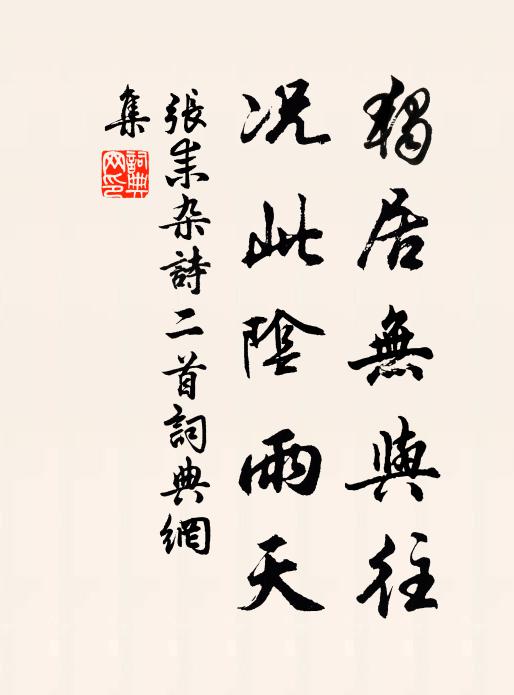 獨居無與往
况此陰雨天
張耒杂詩二首詞典網
集
詞典
网印